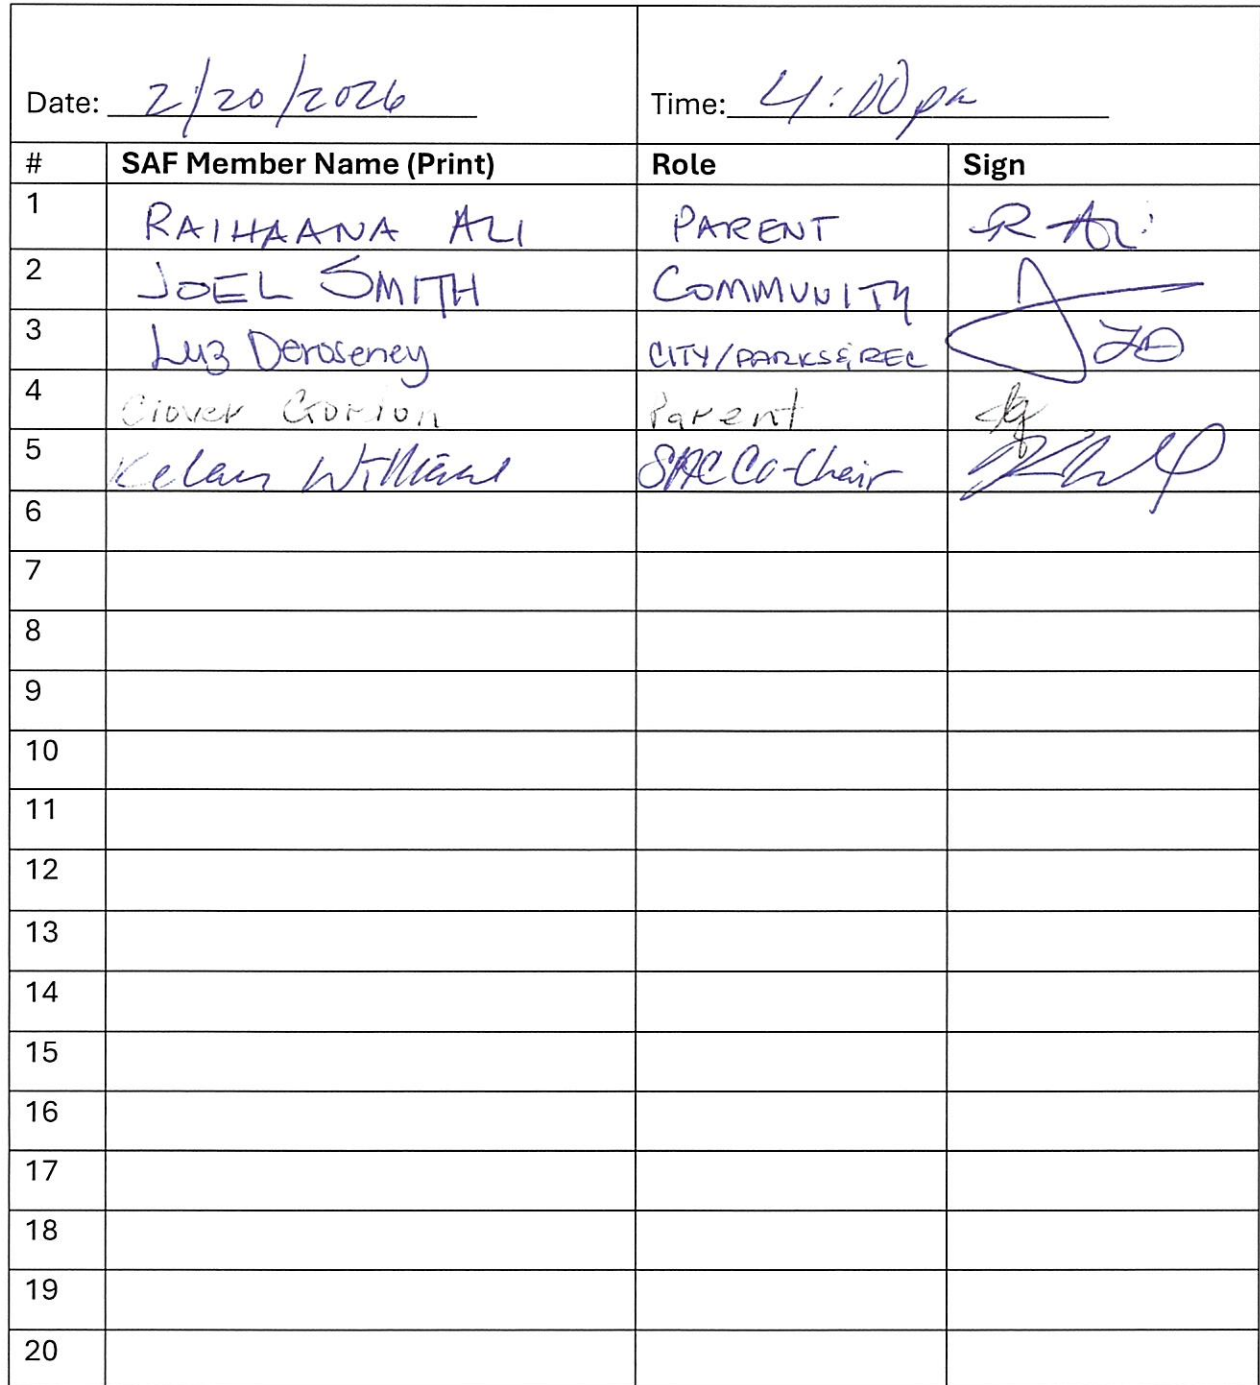 Date: 2/20/2026 Time: 4:00pm
# SAF Member Name (Print) Role Sign
1 RAIHAANA ALI PARENT R Ali
2 JOEL SMITH COMMUNITY
3 Luz Deroseney CITY/PARKS&REC LD
4 Clover Gorton Parent cg
5 Kelan Williams SAC Co-Chair
6
7
8
9
10
11
12
13
14
15
16
17
18
19
20